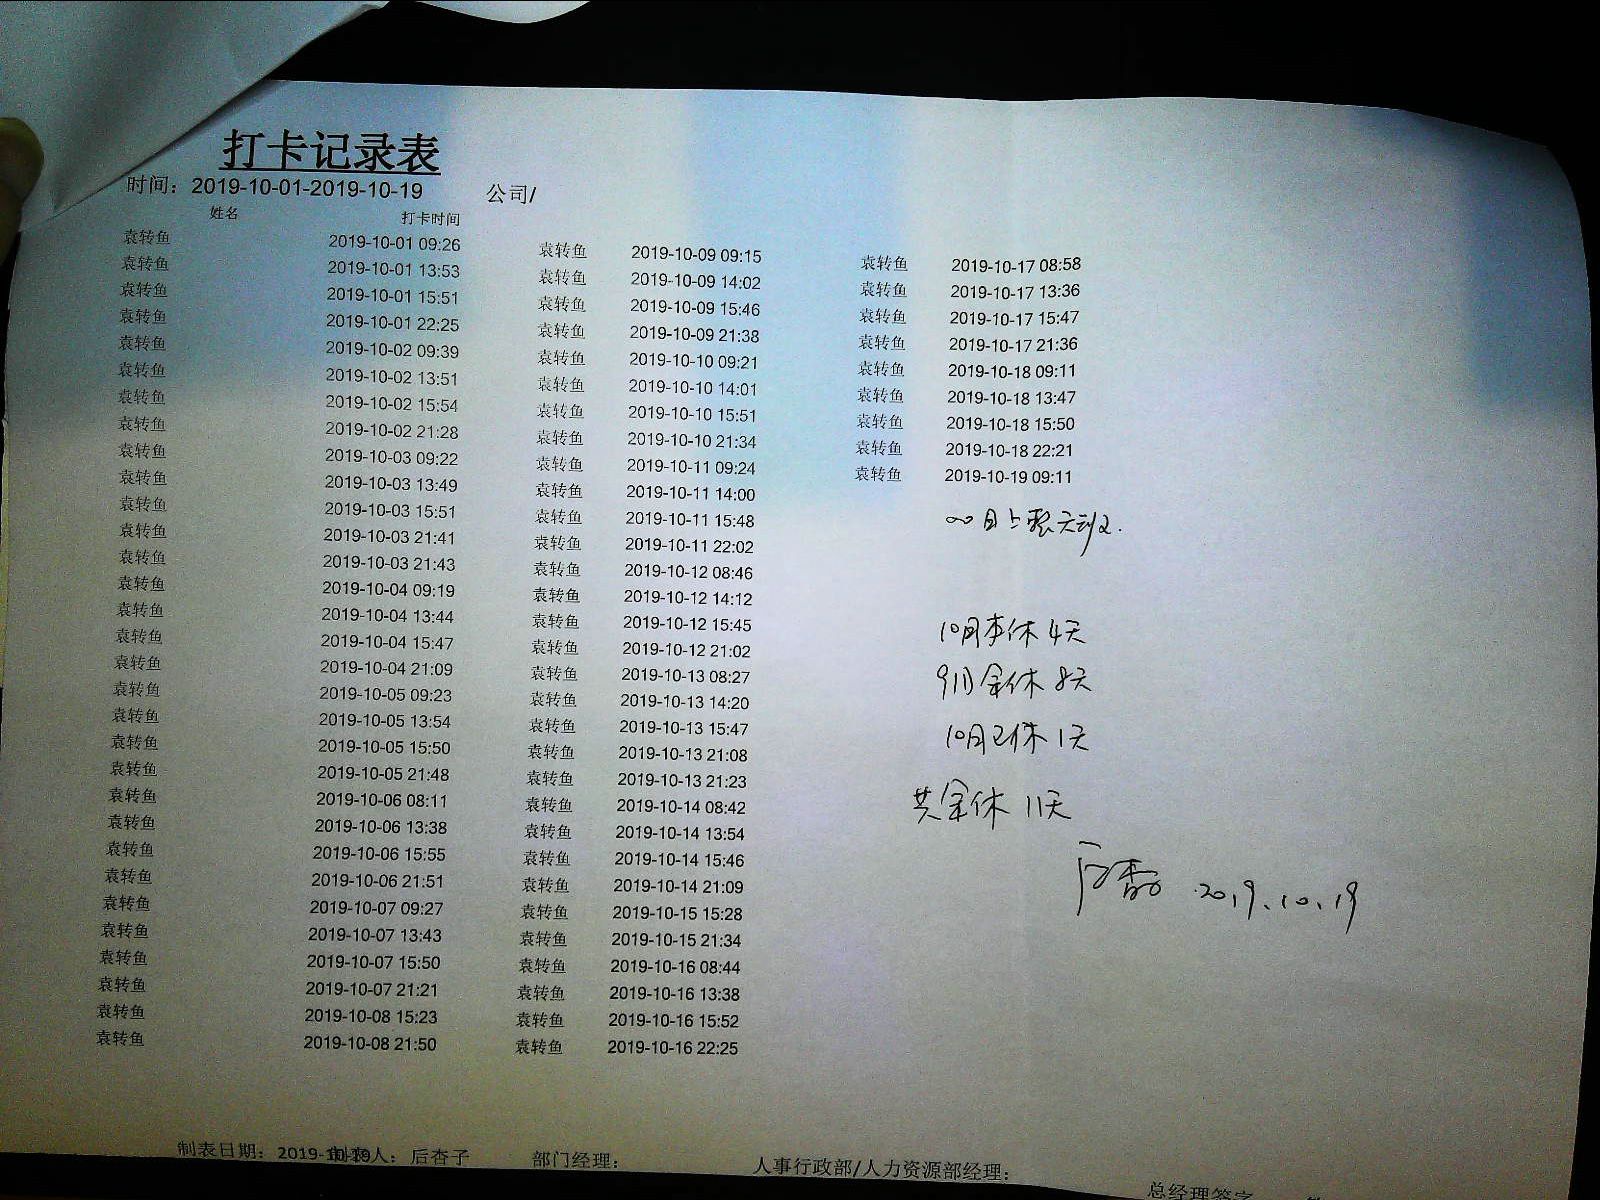 打卡记录表
时间：2019-10-01-2019-10-19 公司/
姓名 打卡时间
袁转鱼 2019-10-01 09:26
袁转鱼 2019-10-01 13:53
袁转鱼 2019-10-01 15:51
袁转鱼 2019-10-01 22:25
袁转鱼 2019-10-02 09:39
袁转鱼 2019-10-02 13:51
袁转鱼 2019-10-02 15:54
袁转鱼 2019-10-02 21:28
袁转鱼 2019-10-03 09:22
袁转鱼 2019-10-03 13:49
袁转鱼 2019-10-03 15:51
袁转鱼 2019-10-03 21:41
袁转鱼 2019-10-03 21:43
袁转鱼 2019-10-04 09:19
袁转鱼 2019-10-04 13:44
袁转鱼 2019-10-04 15:47
袁转鱼 2019-10-04 21:09
袁转鱼 2019-10-05 09:23
袁转鱼 2019-10-05 13:54
袁转鱼 2019-10-05 15:50
袁转鱼 2019-10-05 21:48
袁转鱼 2019-10-06 08:11
袁转鱼 2019-10-06 13:38
袁转鱼 2019-10-06 15:55
袁转鱼 2019-10-06 21:51
袁转鱼 2019-10-07 09:27
袁转鱼 2019-10-07 13:43
袁转鱼 2019-10-07 15:50
袁转鱼 2019-10-07 21:21
袁转鱼 2019-10-08 15:23
袁转鱼 2019-10-08 21:50
袁转鱼 2019-10-09 09:15
袁转鱼 2019-10-09 14:02
袁转鱼 2019-10-09 15:46
袁转鱼 2019-10-09 21:38
袁转鱼 2019-10-10 09:21
袁转鱼 2019-10-10 14:01
袁转鱼 2019-10-10 15:51
袁转鱼 2019-10-10 21:34
袁转鱼 2019-10-11 09:24
袁转鱼 2019-10-11 14:00
袁转鱼 2019-10-11 15:48
袁转鱼 2019-10-11 22:02
袁转鱼 2019-10-12 08:46
袁转鱼 2019-10-12 14:12
袁转鱼 2019-10-12 15:45
袁转鱼 2019-10-12 21:02
袁转鱼 2019-10-13 08:27
袁转鱼 2019-10-13 14:20
袁转鱼 2019-10-13 15:47
袁转鱼 2019-10-13 21:08
袁转鱼 2019-10-13 21:23
袁转鱼 2019-10-14 08:42
袁转鱼 2019-10-14 13:54
袁转鱼 2019-10-14 15:46
袁转鱼 2019-10-14 21:09
袁转鱼 2019-10-15 15:28
袁转鱼 2019-10-15 21:34
袁转鱼 2019-10-16 08:44
袁转鱼 2019-10-16 13:38
袁转鱼 2019-10-16 15:52
袁转鱼 2019-10-16 22:25
袁转鱼 2019-10-17 08:58
袁转鱼 2019-10-17 13:36
袁转鱼 2019-10-17 15:47
袁转鱼 2019-10-17 21:36
袁转鱼 2019-10-18 09:11
袁转鱼 2019-10-18 13:47
袁转鱼 2019-10-18 15:50
袁转鱼 2019-10-18 22:21
袁转鱼 2019-10-19 09:11
10月本休4天
9月余休8天
10月已休1天
共余休11天
2019.10.19
制表日期：2019-10-19 制表人：后杏子 部门经理： 人事行政部/人力资源部经理： 总经理签字